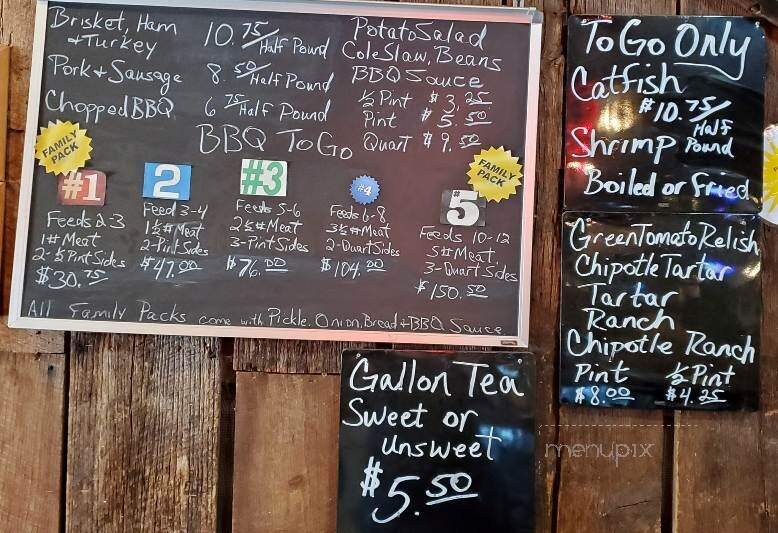 Brisket, Ham
+Turkey 10.75/Half Pound
Pork + Sausage 8.50/Half Pound
Chopped BBQ 6.75/Half Pound
Potato Salad
Cole Slaw, Beans
BBQ Sauce
½ Pint $3.25
Pint $5.50
Quart $9.50
BBQ To Go
FAMILY PACK
FAMILY PACK
#1
Feeds 2-3
1# Meat
2-½ Pint Sides
$30.75
2
Feed 3-4
1½# Meat
2-Pint Sides
$47.00
#3
Feeds 5-6
2½# Meat
3-Pint Sides
$76.00
#4
Feeds 6-8
3½# Meat
2-Quart Sides
$104.00
#5
Feeds 10-12
5# Meat,
3-Quart Sides
$150.50
All Family Packs come with Pickle, Onion, Bread + BBQ Sauce
To Go Only
Catfish
$10.75/Half Pound
Shrimp
Boiled or Fried
Green Tomato Relish
Chipotle Tartar
Tartar
Ranch
Chipotle Ranch
Pint ½ Pint
$8.00 $4.25
Gallon Tea
Sweet or
Unsweet
$5.50
menupix